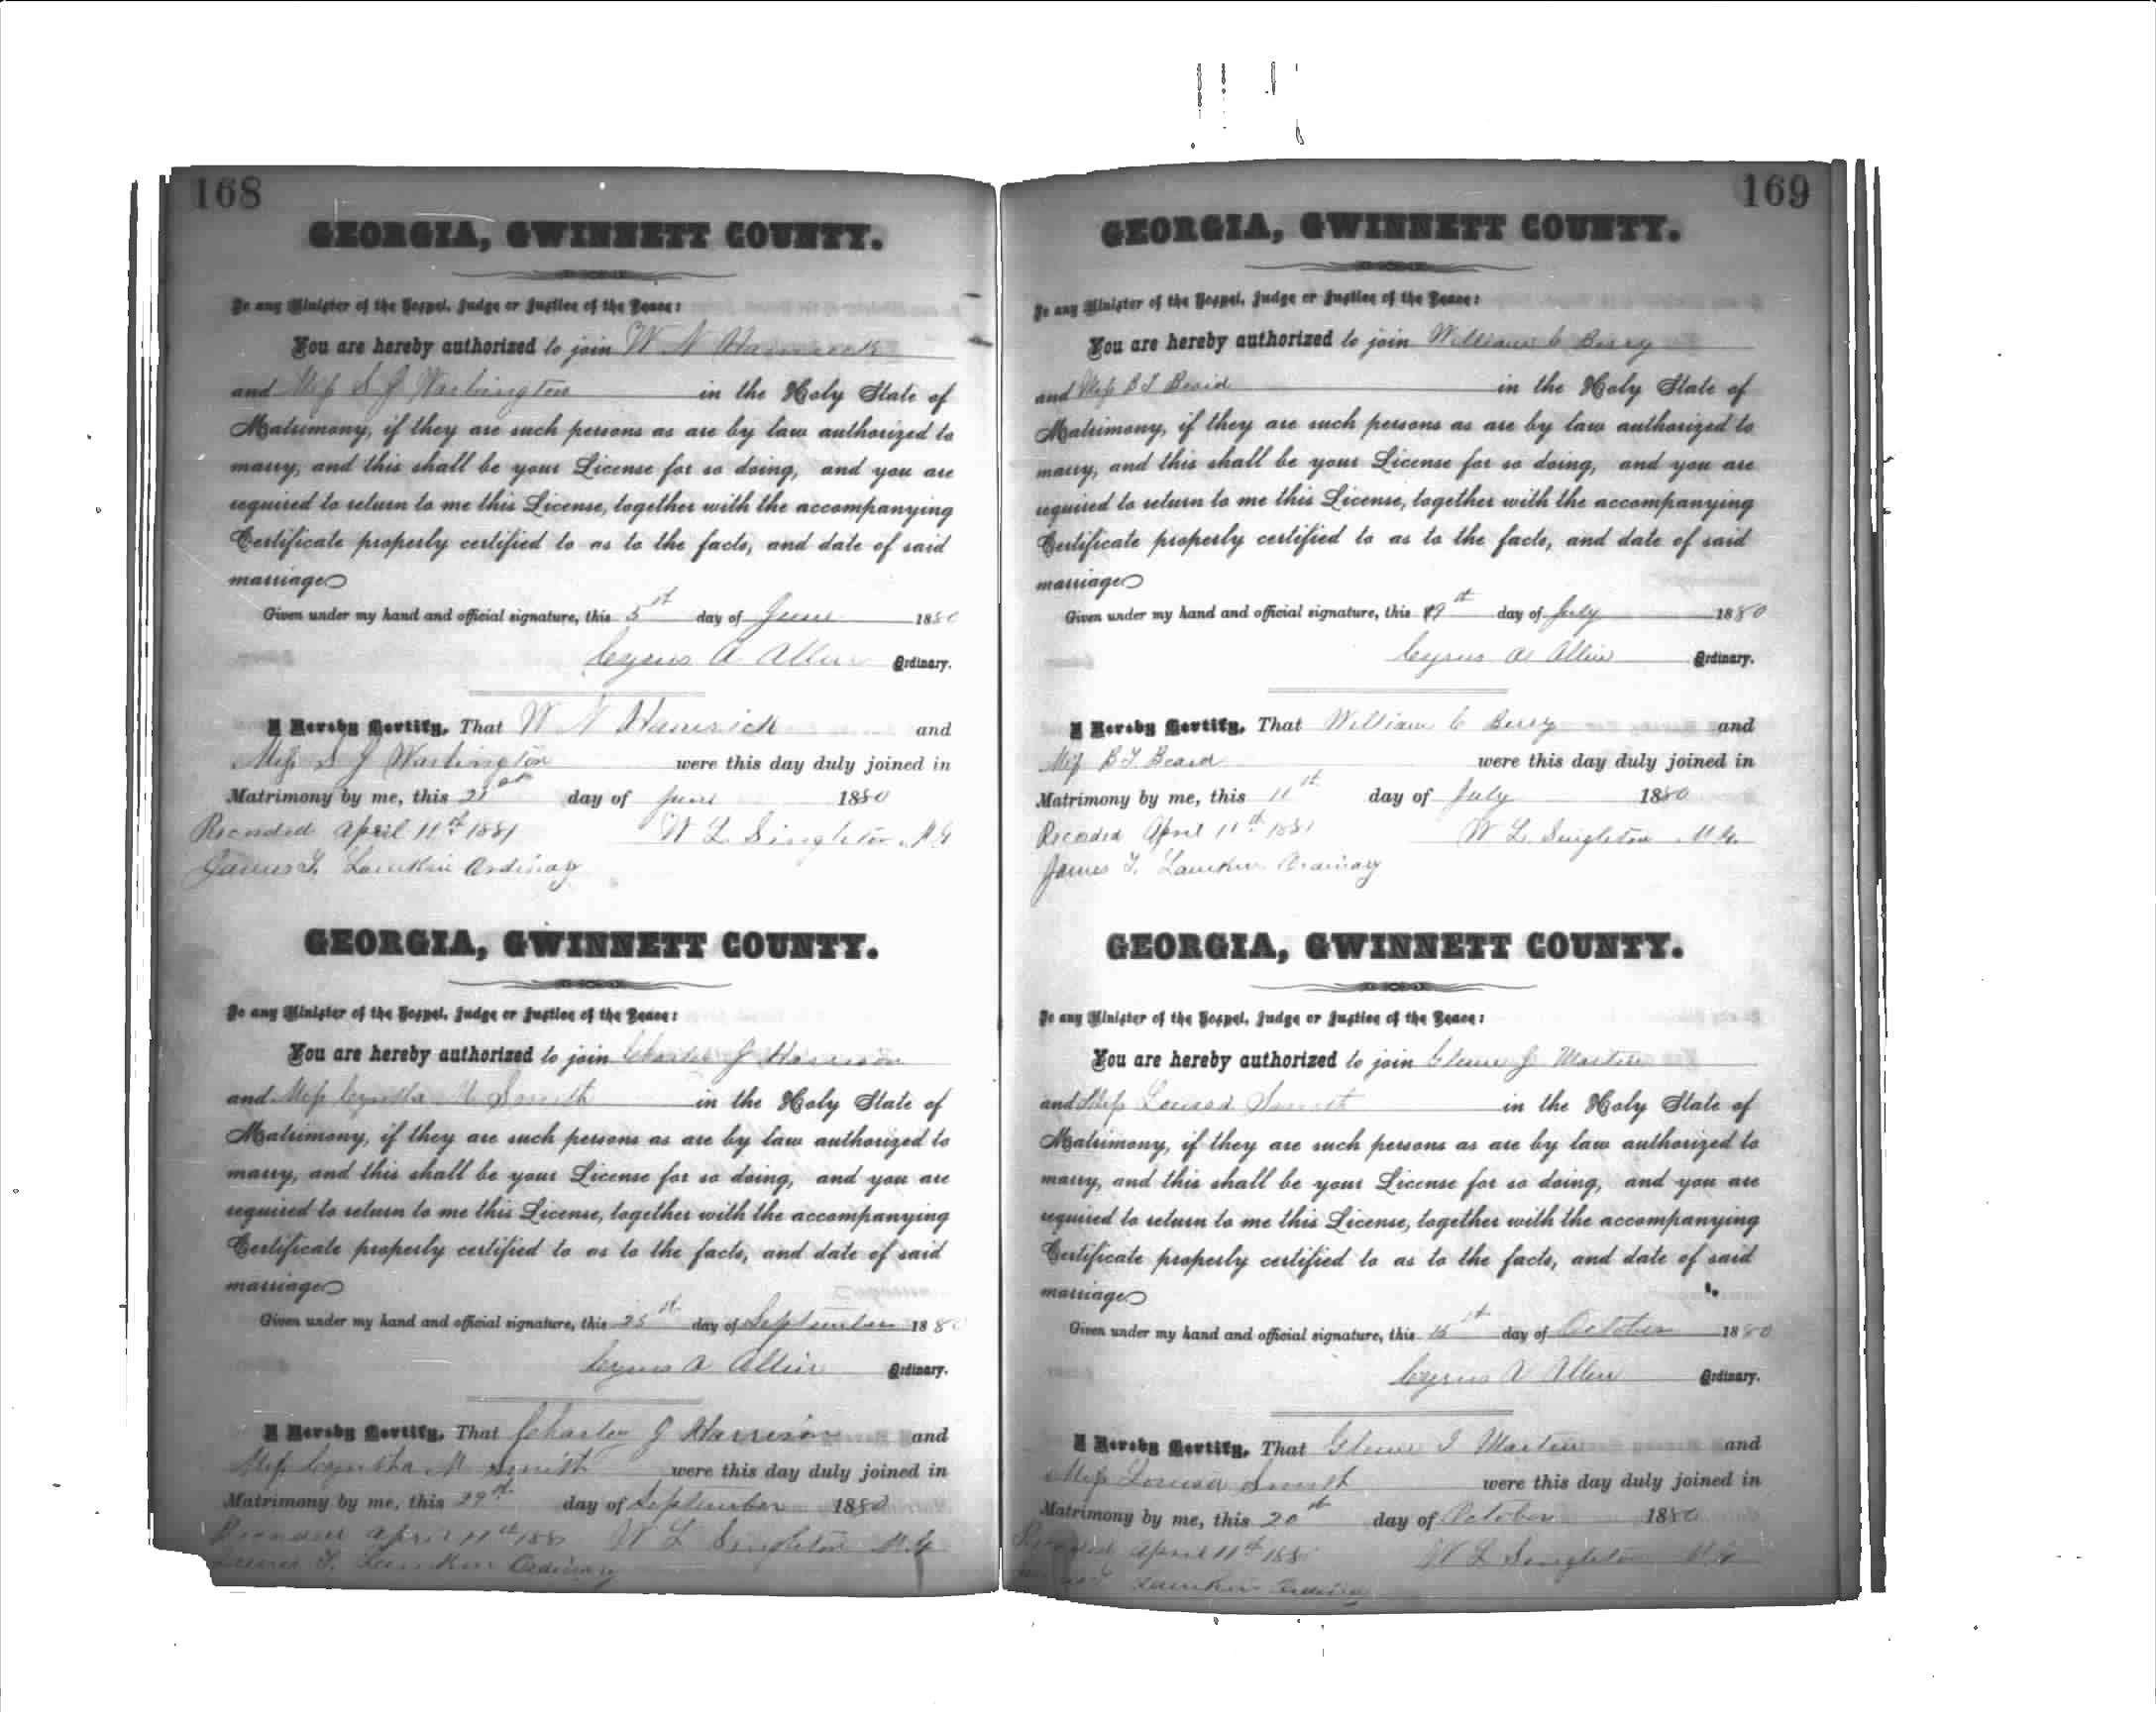 168
GEORGIA, GWINNETT COUNTY.
To any Minister of the Gospel, Judge or Justice of the Peace:
You are hereby authorized to join W N Hamrick
and Miss S J Washington in the Holy State of
Matrimony, if they are such persons as are by law authorized to
marry, and this shall be your License for so doing, and you are
required to return to me this License, together with the accompanying
Certificate properly certified to as to the facts, and date of said
marriage
Given under my hand and official signature, this 5th day of June 1880
Cyrus A Allen Ordinary.
I Hereby Certify, That W N Hamrick and
Miss S J Washington were this day duly joined in
Matrimony by me, this day of June 1880
Recorded April 11th 1881 W L Singleton M G
James T. Lamkin Ordinary
GEORGIA, GWINNETT COUNTY.
To any Minister of the Gospel, Judge or Justice of the Peace:
You are hereby authorized to join Charles J Harrison
and Miss Cyntha M Smith in the Holy State of
Matrimony, if they are such persons as are by law authorized to
marry, and this shall be your License for so doing, and you are
required to return to me this License, together with the accompanying
Certificate properly certified to as to the facts, and date of said
marriage
Given under my hand and official signature, this 25th day of September 1880
Cyrus A Allen Ordinary.
I Hereby Certify, That Charles J Harrison and
Miss Cyntha M Smith were this day duly joined in
Matrimony by me, this 29th day of September 1880
Recorded April 11th 1881 W L Singleton M.G
James T. Lamkin Ordinary
169
GEORGIA, GWINNETT COUNTY.
To any Minister of the Gospel, Judge or Justice of the Peace:
You are hereby authorized to join William C Berry
and Miss B T Beard in the Holy State of
Matrimony, if they are such persons as are by law authorized to
marry, and this shall be your License for so doing, and you are
required to return to me this License, together with the accompanying
Certificate properly certified to as to the facts, and date of said
marriage
Given under my hand and official signature, this 9th day of July 1880
Cyrus A Allen Ordinary.
I Hereby Certify, That William C Berry and
Miss B T. Beard were this day duly joined in
Matrimony by me, this 11th day of July 1880
Recorded April 11th 1881 W L. Singleton M.G.
James T. Lamkin Ordinary
GEORGIA, GWINNETT COUNTY.
To any Minister of the Gospel, Judge or Justice of the Peace:
You are hereby authorized to join J Martin
and Miss Louisa Smith in the Holy State of
Matrimony, if they are such persons as are by law authorized to
marry, and this shall be your License for so doing, and you are
required to return to me this License, together with the accompanying
Certificate properly certified to as to the facts, and date of said
marriage
Given under my hand and official signature, this 15th day of October 1880
Cyrus A Allen Ordinary.
I Hereby Certify, That Martin and
Miss Louisa Smith were this day duly joined in
Matrimony by me, this 20th day of October 1880
Recorded April 11th 1881 W L Singleton M G
Lamkin Ordinary